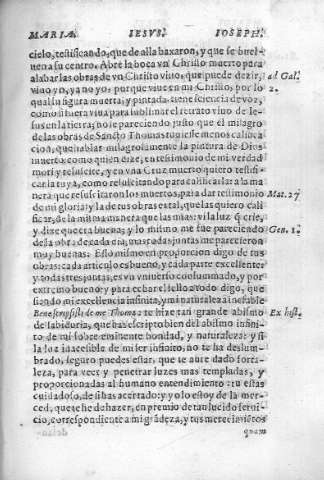 MARIA. IESVS. IOSEPH.
cielo, testificando, que de alla baxaron, y que se buel-
uen a su centro. Abre la boca vn Christo muerto para
alabar las obras de vn Christo viuo, que puede dezir, ad Gal.
viuo yo, ya no yo: porque viue en mi Christo, por lo 2.
qual su figura muerta, y pintada tiene sciencia de voz,
como si fuera viua para sublimar el retrato viuo de Ie-
sus en la tierra; no le pareciendo justo que el milagro
de las obras de Sancto Thomas tuuiesse menos califica-
cion, que hablar milagrosamente la pintura de Dios
muerto: como quien dize, en testimonio de mi verdad
mori y resuscite, y en vna Cruz muerto quiero testifi-
car la tuya, como resuscitando para calificar la a la ma
nera que resuscitaron los muertos, para dar testimonio Mat. 27
de mi gloria: y la de tus obras es tal, que las quiero cali-
ficar, de la misma manera que las mias: vi la luz q̃ crie,
y dixe que era buena; y lo mismo me fue pareciendo Gen. 1.
de la obra de cada dia, mas todas juntas me parecieron
muy buenas. Esso mismo en proporcion digo de tus
obras: cada articulo es bueno, y cada parte excellente
y todas tres juntas, es vn vniuerso consummado, y por
extremo bueno: y para echar el sello a todo digo, que
siendo mi excellencia infinita, y mi naturaleza inefable
Bene scripsisti de me Thoma: te hize tan grande abismo Ex hist.
de sabiduria, que has escripto bien del abismo infini-
to de mi sobre eminente bondad, y naturaleza: y si
la luz inaccesible de mi ser infinito, no te ha deslum-
brado, seguro puedes estar, que te aure dado forta-
leza, para veer y penetrar luzes mas templadas, y
proporcionadas al humano entendimiento: tu estas
cuidadoso, de si has acertado: y yo lo estoy de la mer-
ced, que te he de hazer, en premio de tan lucido serui-
cio, correspondiente a mi grãdeza, y tus merecimiẽtos
quam